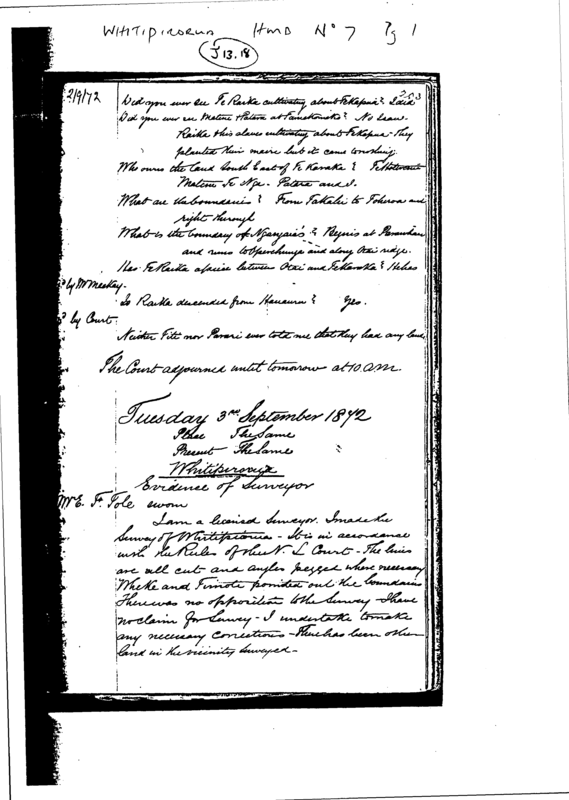 WHITIPIRORUA HMB N° 7 Pg 1
J 13.18
2/9/72
Did you ever see Te Raika cultivating about Te Kapua? I did
Did you ever see Matene Patara at? No
Raika & his slaves cultivating about Te Kapua - they
planted their maire but it came to nothing.
Who owns the land South East of Te Karaka?
Matene Te Nga - Patara and I.
What are the boundaries? From to Tohoroa and
right through
What is the boundary of? Begins at
and runs to and along Otai ridge.
Has Te Raika a piece between Otai and Te Karaka? He has
? by Mr Mackay.
Is Raika descended from Hanauru? Yes.
? by Court
Neither Titi nor ever told me that they had any land,
The Court adjourned until tomorrow at 10 am.
Tuesday 3rd September 1872
Place The Same
Present The Same
Whitipirorua
Evidence of Surveyor
Mr E. F. Tole sworn
I am a licensed Surveyor. I made the
Survey of Whitipirorua - It is in accordance
with the Rules of the N L Court - The lines
are all cut and angles pegged where necessary
and Timote pointed out the boundaries
There was no opposition to the Survey - I have
no claim for Survey - I undertake to make
any necessary corrections - There has been other
land in the vicinity surveyed -